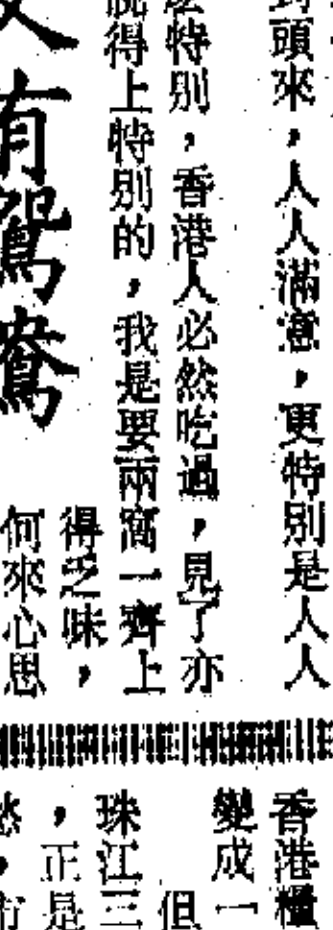 到頭來，人人滿意，更特別是人人
特別，香港人必然吃過，見了亦
說得上特別的，我是要兩窩一齊上
得乏味，
何來心思
又有鴛鴦
香港糧
變成一
但
珠江三
，正是
愁，市